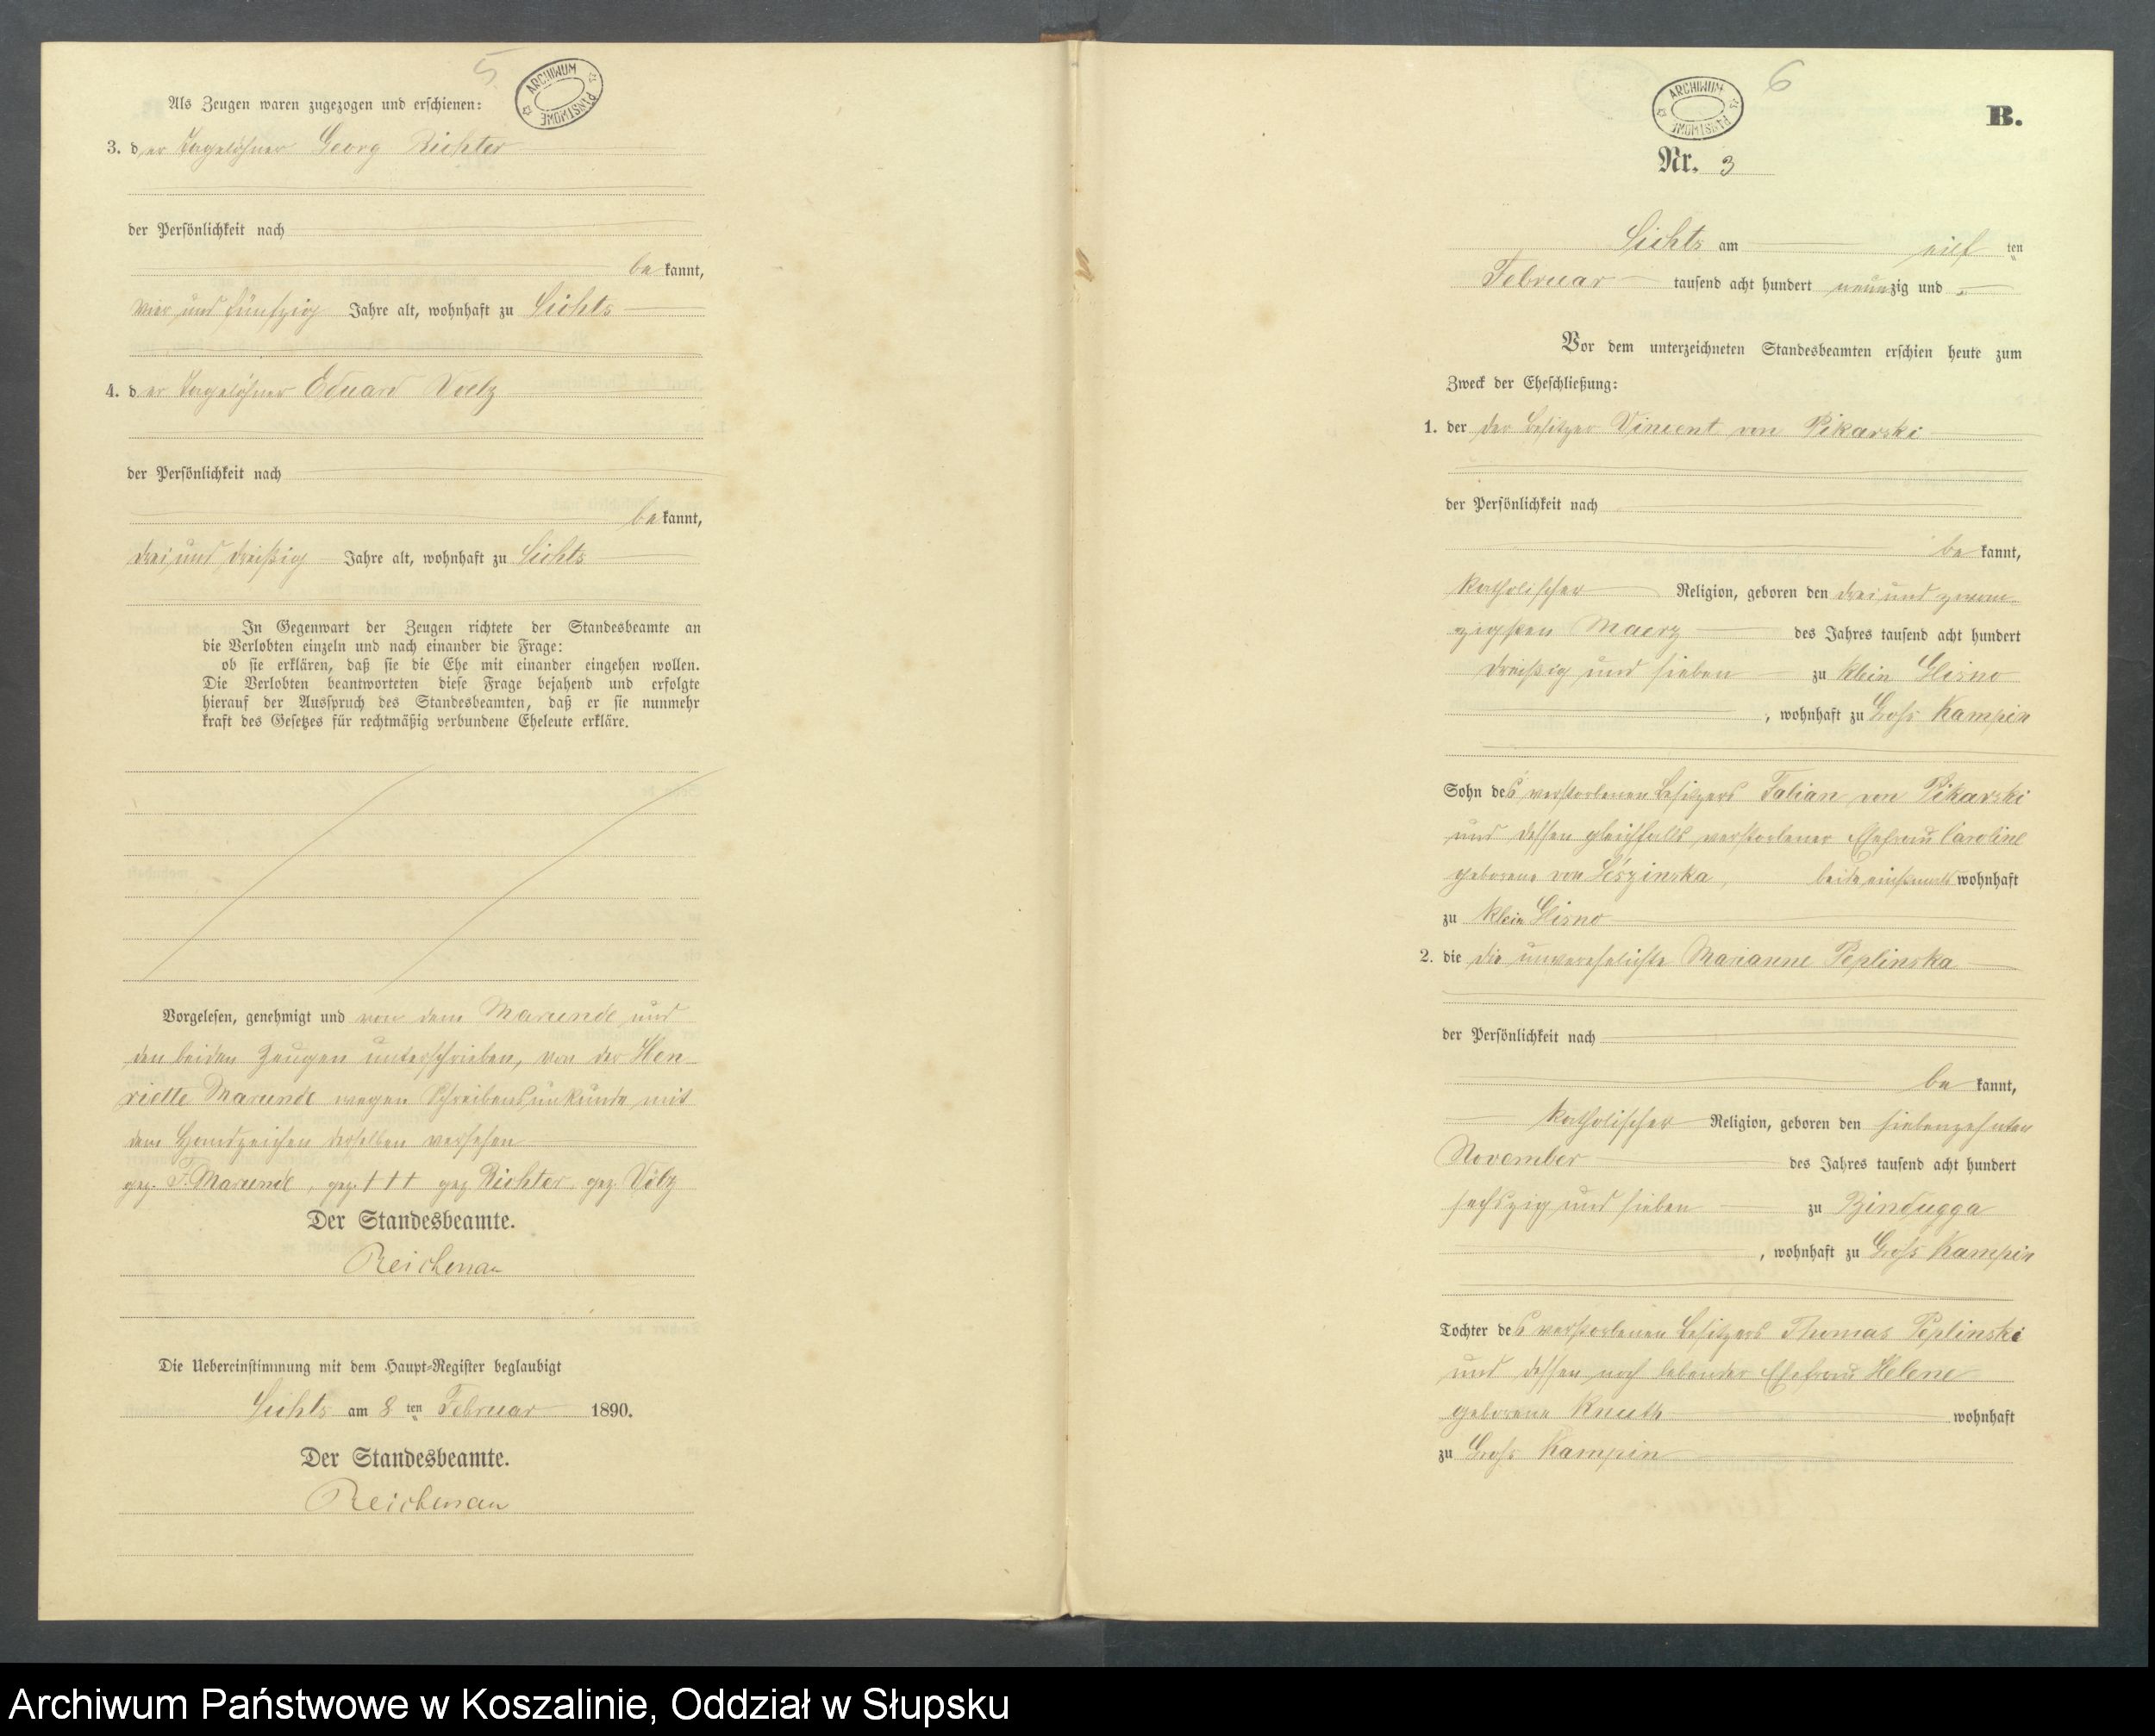 5
ARCHIWUM PAŃSTWOWE
Als Zeugen waren zugezogen und erschienen:
3. der Tagelöhner Georg Richter
der Persönlichkeit nach
bekannt,
vier und fünfzig Jahre alt, wohnhaft zu Lichts
4. der Tagelöhner Eduard Voelz
der Persönlichkeit nach
bekannt,
drei und dreißig Jahre alt, wohnhaft zu Lichts
In Gegenwart der Zeugen richtete der Standesbeamte an
die Verlobten einzeln und nach einander die Frage:
ob sie erklären, daß sie die Ehe mit einander eingehen wollen.
Die Verlobten beantworteten diese Frage bejahend und erfolgte
hierauf der Ausspruch des Standesbeamten, daß er sie nunmehr
kraft des Gesetzes für rechtmäßig verbundene Eheleute erkläre.
Vorgelesen, genehmigt und von dem Marunde und
den beiden Zeugen unterschrieben, von der Hen-
riette Marunde wegen Schreibensunkunde mit
dem Handzeichen derselben versehen
gez. F. Marunde, gez. +++ gez. Richter gez. Völz
Der Standesbeamte.
Reichenau
Die Uebereinstimmung mit dem Haupt-Register beglaubigt
Lichts am 8 ten Februar 1890.
Der Standesbeamte.
Reichenau
6
ARCHIWUM PAŃSTWOWE
B.
Nr. 3
Lichts am elf ten
Februar tausend acht hundert neunzig und -
Vor dem unterzeichneten Standesbeamten erschien heute zum
Zweck der Eheschließung:
1. der der Besitzer Vincent von Pikarski
der Persönlichkeit nach
bekannt,
katholischer Religion, geboren den drei und zwan-
zigsten Maerz des Jahres tausend acht hundert
dreißig und sieben zu Klein Glisno
, wohnhaft zu Groß Kampin
Sohn des verstorbenen Besitzers Fabian von Pikarski
und dessen gleichfalls verstorbener Ehefrau Caroline
geborene von beide einstmals wohnhaft
zu Klein Glisno
2. die die unverehelichte Marianne Peplinska
der Persönlichkeit nach
bekannt,
katholischer Religion, geboren den siebenzehnten
November des Jahres tausend acht hundert
sechszig und sieben zu Bindugga
, wohnhaft zu Groß Kampin
Tochter des verstorbenen Besitzers Thomas Peplinski
und dessen noch lebender Ehefrau Helene
geborene Knuth wohnhaft
zu Groß Kampin
Archiwum Państwowe w Koszalinie, Oddział w Słupsku